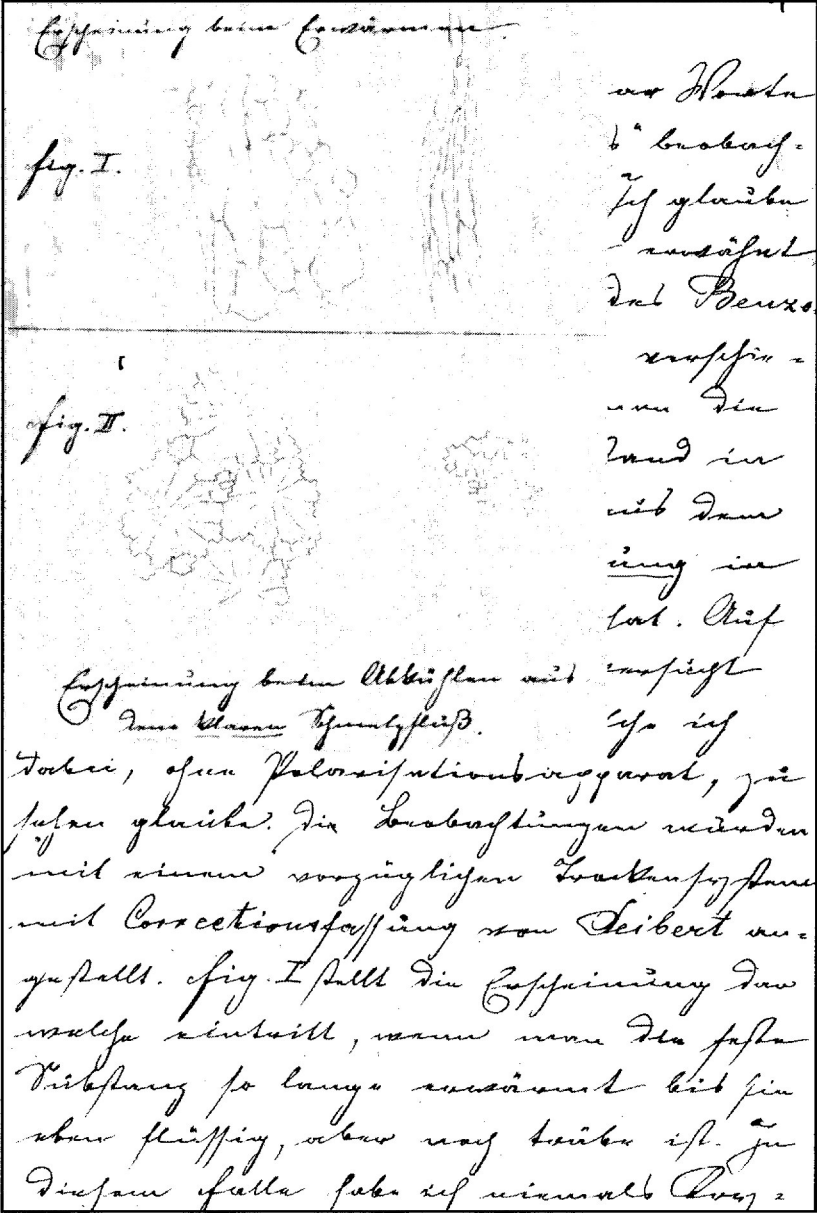 Erscheinung beim Erwärmen.
fig. I.
fig. II.
Erscheinung beim Abkühlen aus
dem klaren Schmelzfluß.
ar Worte
s" beobach-
Ich glaube
erwähnt
des Benzo-
verschie-
nen die
land in
aus dem
ung in
hat. Auf
versucht
che ich
dabei, ohne Polarisationsapparat, zu
sehen glaube. Die Beobachtungen wurden
mit einem vorzüglichen Trockensystem
mit Correctionsfassung von Seibert an-
gestellt. fig. I stellt die Erscheinung dar
welche eintritt, wenn man die feste
Substanz so lange erwärmt bis sie
eben flüssig, aber noch trübe ist. In
diesem Falle habe ich niemals Krys-